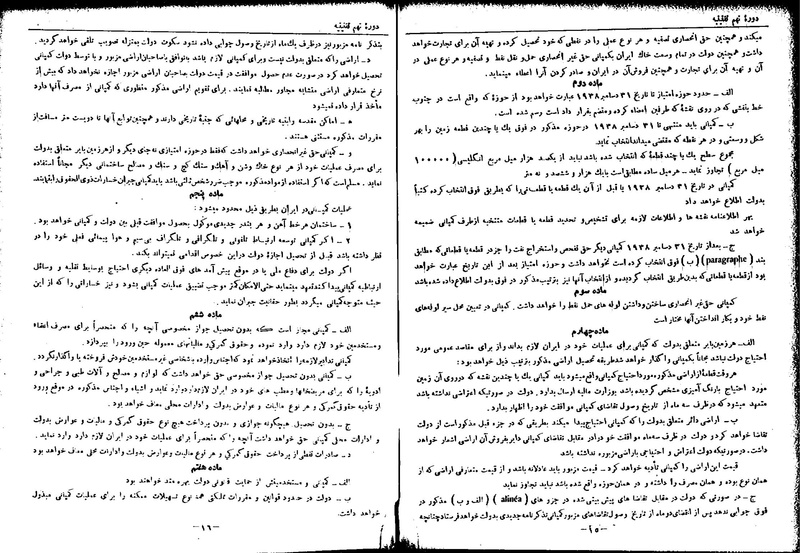 دورهٔ نهم تقنینیه
میکند و همچنین حق انحصاری تصفیه و هر نوع عمل را در نفطی که خود تحصیل کرده و تهیه آن برای تجارت خواهد
داشت و همچنین دولت در تمام وسعت خاك ایران بکمپانی حق غیر انحصاری حمل و نقل نفط و تصفیه و هر نوع عملی در
آن و تهیه آن برای تجارت و همچنین فروش آن در ایران و صادر کردن آنرا اعطاء مینماید.
ماده دوم
الف ـ حدود حوزه امتیاز تا تاریخ ۳۱ دسامبر ۱۹۳۸ عبارت خواهد بود از حوزهٔ که واقع است در جنوب
خط بنفشی که در روی نقشهٔ که طرفین امضاء کرده و منضم بقرار داد است رسم شده است.
ب ـ کمپانی باید منتهی تا ۳۱ دسامبر ۱۹۳۸ در حوزه مذکور در فوق یك یا چندین قطعه زمین را بهر
شکل و وسعتی و در هر نقطه که مقتضی میداند انتخاب نماید.
مجموع سطح یك یا چند قطعهٔ که انتخاب شده باشد نباید از یکصد هزار میل مربع انگلیسی (۱۰۰۰۰۰
میل مربع) تجاوز نماید ـ هر میل ساده مطابق است با یك هزار و ششصد و نه متر
کمپانی در تاریخ ۳۱ دسامبر ۱۹۳۸ یا قبل از آن یك قطعه یا قطعاتی را که بطریق فوق انتخاب کرده کتباً
بدولت اطلاع خواهد داد
بهر اطلاعنامه نقشه ها و اطلاعات لازمه برای تشخیص و تحدید قطعه یا قطعات منتخبه از طرف کمپانی ضمیمه
خواهد شد
ج ـ بعد از تاریخ ۳۱ دسامبر ۱۹۳۸ کمپانی دیگر حق تفحص و استخراج نفت را جز در قطعه یا قطعاتی که مطابق
بند (paragraphe) (ب) فوق انتخاب کرده است نخواهد داشت و حوزه امتیاز بعد از این تاریخ عبارت خواهد
بود از قطعه یا قطعاتی که بدین طریق انتخاب کرده و از انتخاب آنها نیز بترتیب مذکور در فوق بدولت اطلاع داده شده باشد
ماده سوم
کمپانی حق غیر انحصاری ساختن و داشتن لوله های حمل نفط را خواهد داشت. کمپانی در تعیین محل سیر لوله های
نفط خود و بکار انداختن آنها مختار است
ماده چهارم
الف ـ هر زمین بایر متعلق بدولت که کمپانی برای عملیات خود در ایران لازم بداند و از برای مقاصد عمومی مورد
احتیاج دولت نباشد مجاناً بکمپانی واگذار خواهد شد طریقه تحصیل اراضی مذکور بترتیب ذیل خواهد بود:
هر وقت قطعهٔ از اراضی مذکوره مورد احتیاج کمپانی واقع میشود باید کمپانی یك یا چندین نقشه که در روی آن زمین
مورد احتیاج با رنگ آمیزی مشخص گردیده باشد بوزارت مالیه ارسال بدارد. دولت در صورتیکه اعتراضی نداشته باشد
متعهد میشود که در ظرف سه ماه از تاریخ وصول تقاضای کمپانی موافقت خود را اظهار بدارد.
ب ـ اراضی دائر متعلق بدولت را که کمپانی احتیاج پیدا میکند بطریقی که در جزء قبل مذکور است از دولت
تقاضا خواهد کرد و دولت در ظرف سه ماه موافقت خود را در مقابل تقاضای کمپانی دایر بفروش آن اراضی اشعار خواهد
داشت. در صورتیکه دولت اعتراض و احتیاجی باراضی مزبوره نداشته باشد
قیمت این اراضی را کمپانی تأدیه خواهد کرد ـ قیمت مزبور باید عادلانه باشد و از قیمت متعارفی اراضی که از
همان نوع بوده و همان مصرف را داشته و در همان حوزه واقع شده باشد نباید تجاوز نماید
ج ـ در صورتی که دولت در مقابل تقاضا های پیش بینی شده در جزو های (alinéa) (الف و ب) مذکور در
فوق جوابی ندهد پس از انقضای دو ماه از تاریخ وصول تقاضاهای مزبور کمپانی تذکر نامه جدیدی بدولت خواهد فرستاد چنانچه
ـ ۱۵ ـ
دورهٔ نهم تقنینیه
بتذکر نامه مزبور نیز در ظرف یك ماه از تاریخ وصول جوابی داده نشود سکوت دولت بمنزله تصویب تلقی خواهد گردید.
د ـ اراضی را که متعلق بدولت نیست و برای کمپانی لازم باشد با توافق با صاحبان اراضی مزبور و با توسط دولت کمپانی
تحصیل خواهد کرد در صورت عدم حصول موافقت در قیمت دولت بصاحبان اراضی مزبور اجازه نخواهد داد که بیش از
نرخ متعارفی اراضی مشابه مجاور مطالبه نمایند. برای تقویم اراضی مذکور منظوری که کمپانی از مصرف آنها دارد
مأخذ قرار داده نمیشود
ه ـ اماکن مقدسه و ابنیه تاریخی و محلهائی که جنبهٔ تاریخی دارند و همچنین توابع آنها تا دویست متر مسافت از
مقررات مذکوره مستثنی هستند.
و ـ کمپانی حق غیر انحصاری خواهد داشت که فقط در حوزه امتیازی نه جای دیگر و از هر زمین بایر متعلق بدولت
برای مصرف عملیات خود از هر نوع خاك و شن و آهك و سنك گچ و سنك و مصالح ساختمانی دیگر مجاناً استفاده
نماید. مسلم است که اگر استفاده از مواد مذکوره موجب ضرر شخص ثالثی باشد باید کمپانی جبران خسارات ذوی الحقوق را بنماید.
ماده پنجم
عملیات کمپانی در ایران بطریق ذیل محدود میشود:
۱ ـ ساختمان هر خط آهن و هر بندر جدیدی موکول بحصول موافقت قبلی بین دولت و کمپانی خواهد بود.
۲ ـ اگر کمپانی توسعه ارتباط تلفونی و تلگرافی و تلگراف بی سیم و هوا پیمائی فعلی خود را در
نظر داشته باشد قبل از تحصیل اجازهٔ دولت در این خصوص اقدامی نمیتواند بکند.
اگر دولت برای دفاع ملی یا در موقع پیش آمد های فوق العاده دیگری احتیاج بوسائط نقلیه و وسائل
ارتباطیه کمپانی پیدا کند متعهد میشود حتی الامکان کمتر موجب تضییق عملیات کمپانی بشود و نیز خساراتی را که از این
حیث متوجه کمپانی میگردد بطور حقانیت جبران نماید.
ماده ششم
الف ـ کمپانی مجاز است که بدون تحصیل جواز مخصوصی آنچه را که منحصراً برای مصرف اعضاء
و مستخدمین خود لازم دارد وارد نموده و حقوق گمرکی و مالیاتهای معموله حین ورود را بپردازد.
کمپانی تدابیر لازمه را اتخاذ خواهد نمود که اجناس وارده باشخاص غیر مستخدمین خودش فروخته یا واگذار نگردد.
ب ـ کمپانی بدون تحصیل جواز مخصوصی حق خواهد داشت که لوازم و مصالح و آلات طبی و جراحی و
ادویهٔ را که برای مریضخانها و مطب های خود در ایران لازم دارد وارد نماید و اشیاء و اجناس مذکوره در موقع ورود
از تأدیه حقوق گمرکی و هر نوع مالیات و عوارض بدولت و ادارات محلی معاف خواهد بود.
ج ـ بدون تحصیل هیچگونه جوازی و بدون پرداخت هیچ نوع حقوق گمرکی و مالیات و عوارض بدولت
و ادارات محلی کمپانی حق خواهد داشت آنچه را که منحصراً برای عملیات خود در ایران لازم دارد وارد نماید.
د ـ صادرات نفطی از پرداخت حقوق گمرکی و هر نوع مالیات و عوارض بدولت و ادارات محلی معاف خواهد بود
ماده هفتم
الف ـ کمپانی و مستخدمینش از حمایت قانونی دولت بهره مند خواهند بود
ب ـ دولت در حدود قوانین و مقررات مملکتی همه نوع تسهیلات ممکنه را برای عملیات کمپانی مبذول
خواهد داشت.
ـ ۱۶ ـ